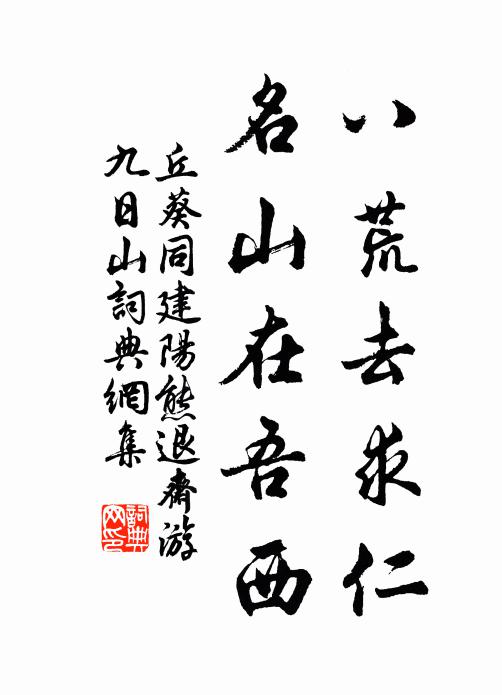 八荒去求仁
名山在吾西
丘葵同建陽熊退齋游
九日山詞典網集
詞典
网印